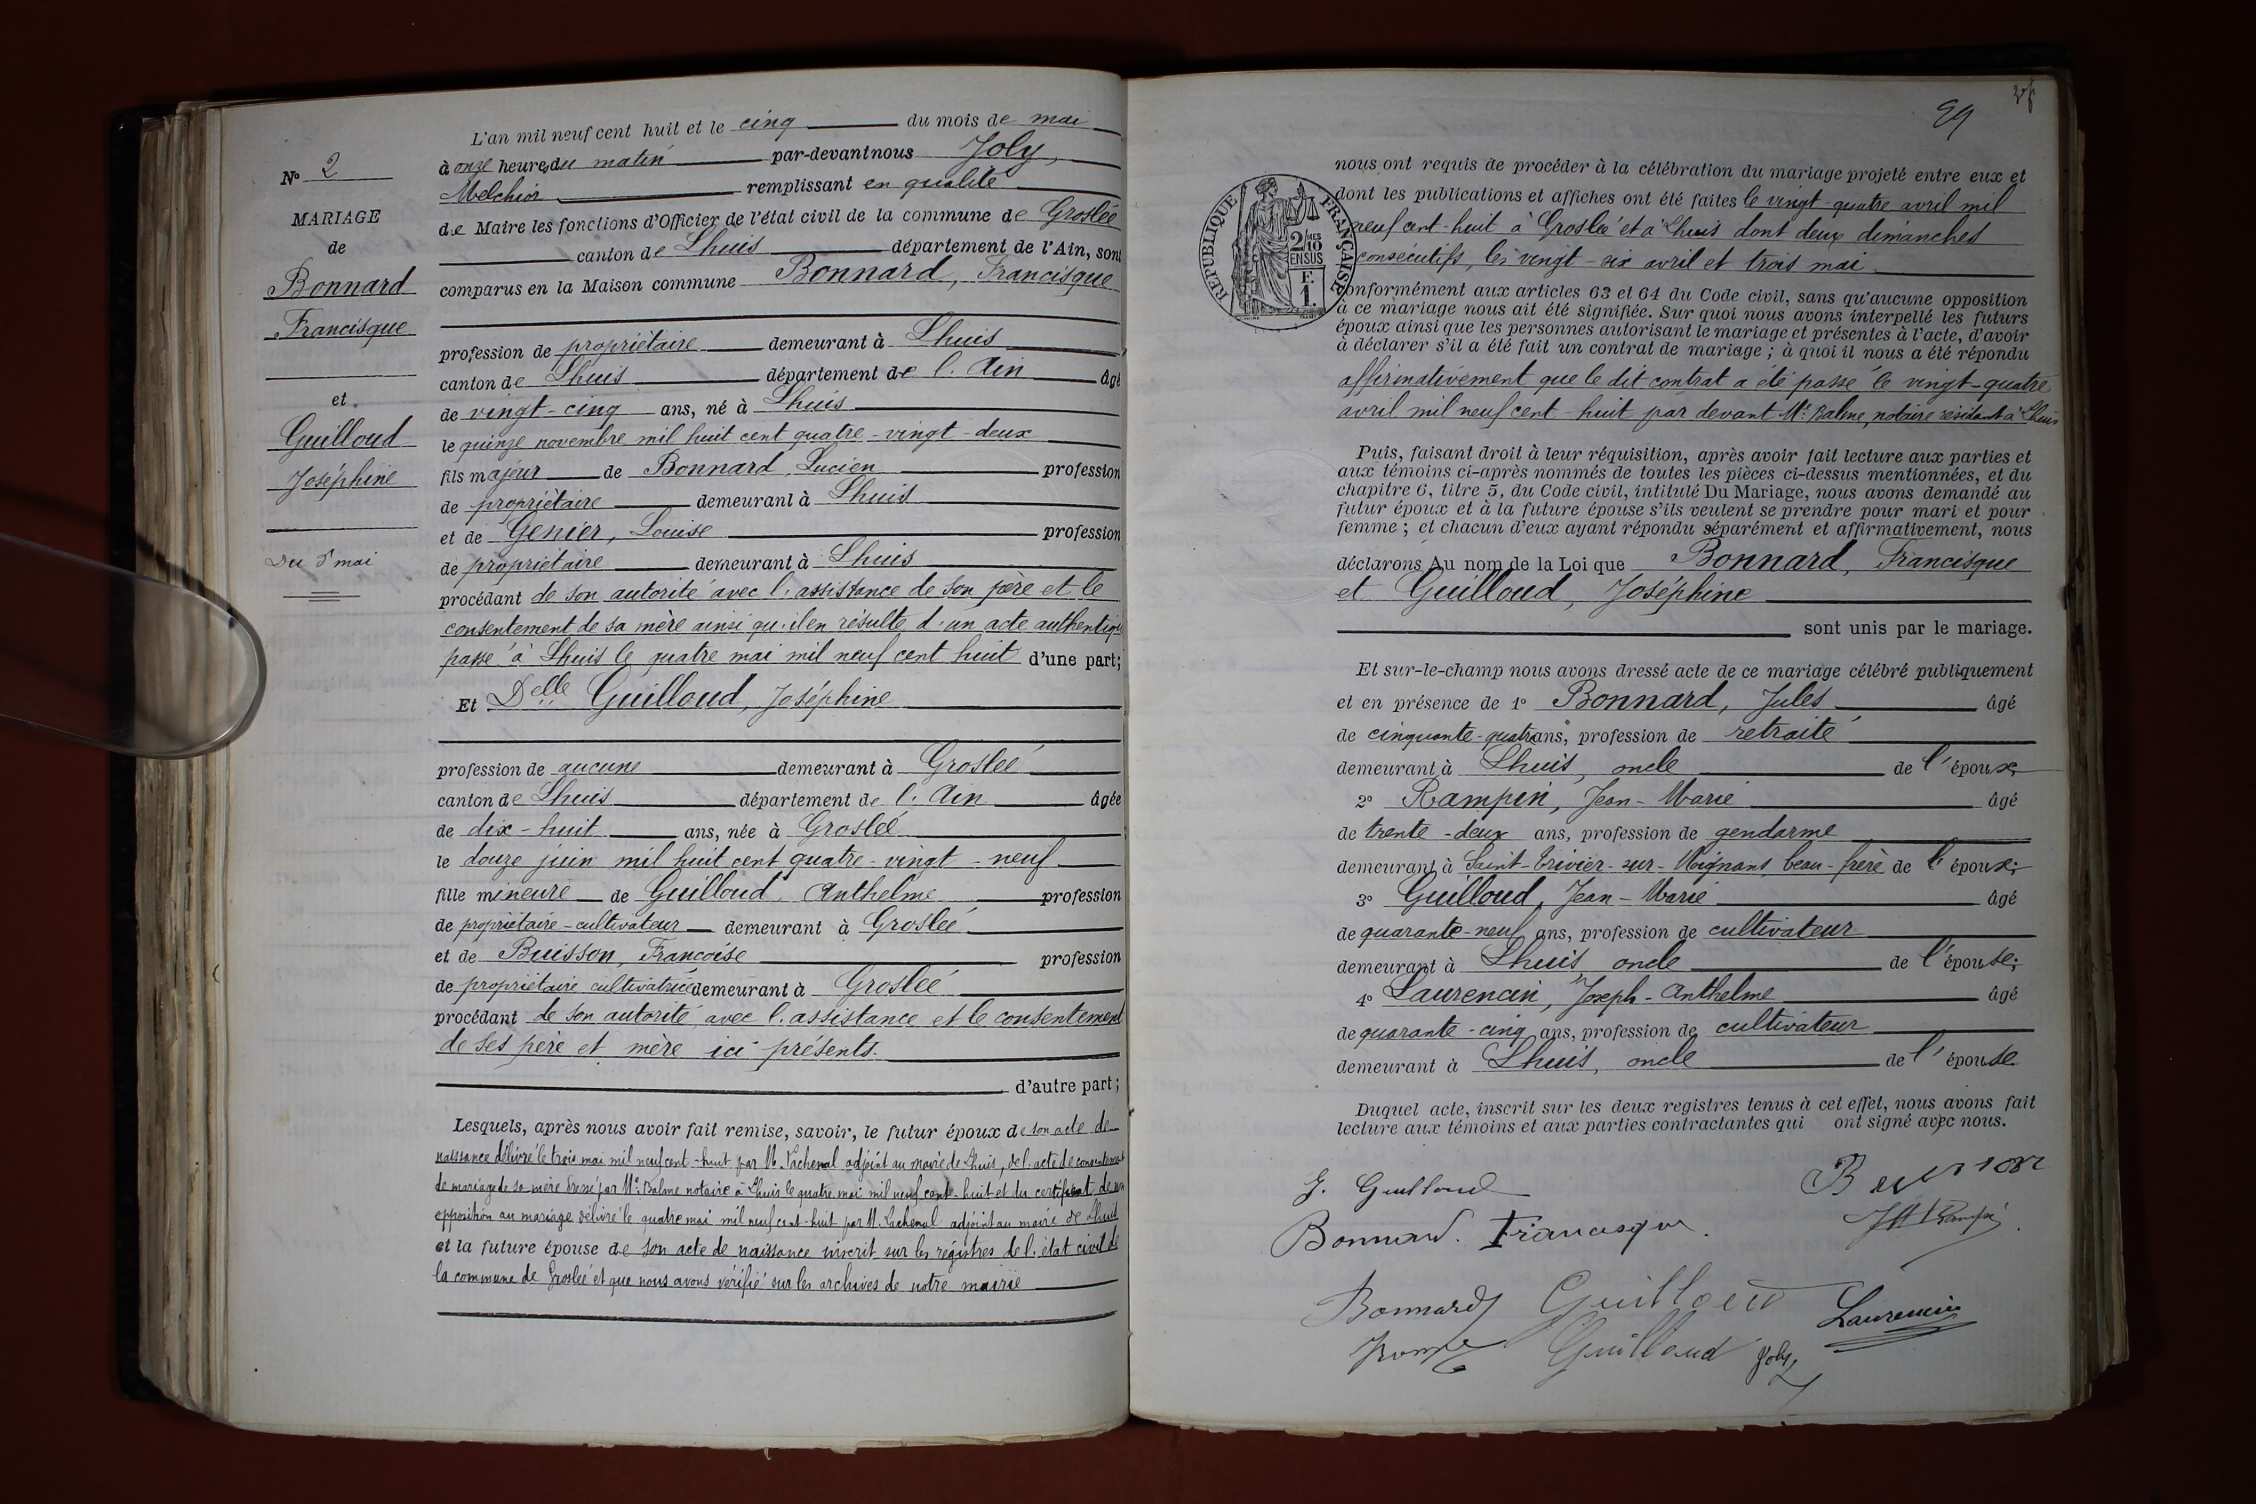 N° 2
MARIAGE
de
Bonnard
Francisque
et
Guilloud
Joséphine
Du 5 mai
L'an mil neuf cent huit et le cinq du mois de mai
à onze heures du matin par-devant nous Joly,
Melchior remplissant en qualité
de Maire les fonctions d'Officier de l'état civil de la commune de Groslée
canton de Lhuis département de l'Ain, sont
comparus en la Maison commune Bonnard, Francisque
profession de propriétaire demeurant à Lhuis
canton de Lhuis département de l'Ain âgé
de vingt-cinq ans, né à Lhuis
le quinze novembre mil huit cent quatre-vingt-deux
fils majeur de Bonnard Lucien profession
de propriétaire demeurant à Lhuis
et de Genier, Louise profession
de propriétaire demeurant à Lhuis
procédant de son autorité avec l'assistance de son père et le
consentement de sa mère ainsi qu'il en résulte d'un acte authentique
passé à Lhuis le quatre mai mil neuf cent huit d'une part;
Et Delle Guilloud, Joséphine
profession de aucune demeurant à Groslée
canton de Lhuis département de l'Ain âgée
de dix-huit ans, née à Groslée
le douze juin mil huit cent quatre-vingt-neuf
fille mineure de Guilloud Anthelme profession
de propriétaire-cultivateur demeurant à Groslée
et de Buisson, Françoise profession
de propriétaire cultivatrice demeurant à Groslée
procédant de son autorité avec l'assistance et le consentement
de ses père et mère ici présents.
d'autre part;
Lesquels, après nous avoir fait remise, savoir, le futur époux de son acte de
naissance délivré le trois mai mil neuf cent-huit par M. Vachenal adjoint au maire de Lhuis, de l'acte de consentement
de mariage de sa mère dressé par Me Balme notaire à Lhuis le quatre mai mil neuf cent-huit et du certificat de non
opposition au mariage délivré le quatre mai mil neuf cent-huit par M. Vachenal adjoint au maire de Lhuis
et la future épouse de son acte de naissance inscrit sur les registres de l'état civil de
la commune de Groslée et que nous avons vérifié sur les archives de notre mairie
29
RÉPUBLIQUE FRANÇAISE
2/10 MES
EN SUS
F.
1.
nous ont requis de procéder à la célébration du mariage projeté entre eux et
dont les publications et affiches ont été faites le vingt-quatre avril mil
neuf cent-huit à Groslée et à Lhuis dont deux dimanches
consécutifs, les vingt-six avril et trois mai
conformément aux articles 63 et 64 du Code civil, sans qu'aucune opposition
à ce mariage nous ait été signifiée. Sur quoi nous avons interpellé les futurs
époux ainsi que les personnes autorisant le mariage et présentes à l'acte, d'avoir
à déclarer s'il a été fait un contrat de mariage; à quoi il nous a été répondu
affirmativement que le dit contrat a été passé le vingt-quatre
avril mil neuf cent-huit par devant Me Balme, notaire résidant à Lhuis
Puis, faisant droit à leur réquisition, après avoir fait lecture aux parties et
aux témoins ci-après nommés de toutes les pièces ci-dessus mentionnées, et du
chapitre 6, titre 5, du Code civil, intitulé Du Mariage, nous avons demandé au
futur époux et à la future épouse s'ils veulent se prendre pour mari et pour
femme; et chacun d'eux ayant répondu séparément et affirmativement, nous
déclarons Au nom de la Loi que Bonnard, Francisque
et Guilloud, Joséphine
sont unis par le mariage.
Et sur-le-champ nous avons dressé acte de ce mariage célébré publiquement
et en présence de 1° Bonnard, Jules âgé
de cinquante-quatre ans, profession de retraité
demeurant à Lhuis, oncle de l'époux;
2° Rampin, Jean-Marie âgé
de trente-deux ans, profession de gendarme
demeurant à Saint-Trivier-sur-Moignans, beau-frère de l'époux;
3° Guilloud, Jean-Marie âgé
de quarante-neuf ans, profession de cultivateur
demeurant à Lhuis, oncle de l'épouse;
4° Laurencin, Joseph-Anthelme âgé
de quarante-cinq ans, profession de cultivateur
demeurant à Lhuis, oncle de l'épouse
Duquel acte, inscrit sur les deux registres tenus à cet effet, nous avons fait
lecture aux témoins et aux parties contractantes qui ont signé avec nous.
J. Guilloud
Buisson
Bonnard. Francisque.
Bonnard
Guilloud
Laurencin
Guilloud
Joly